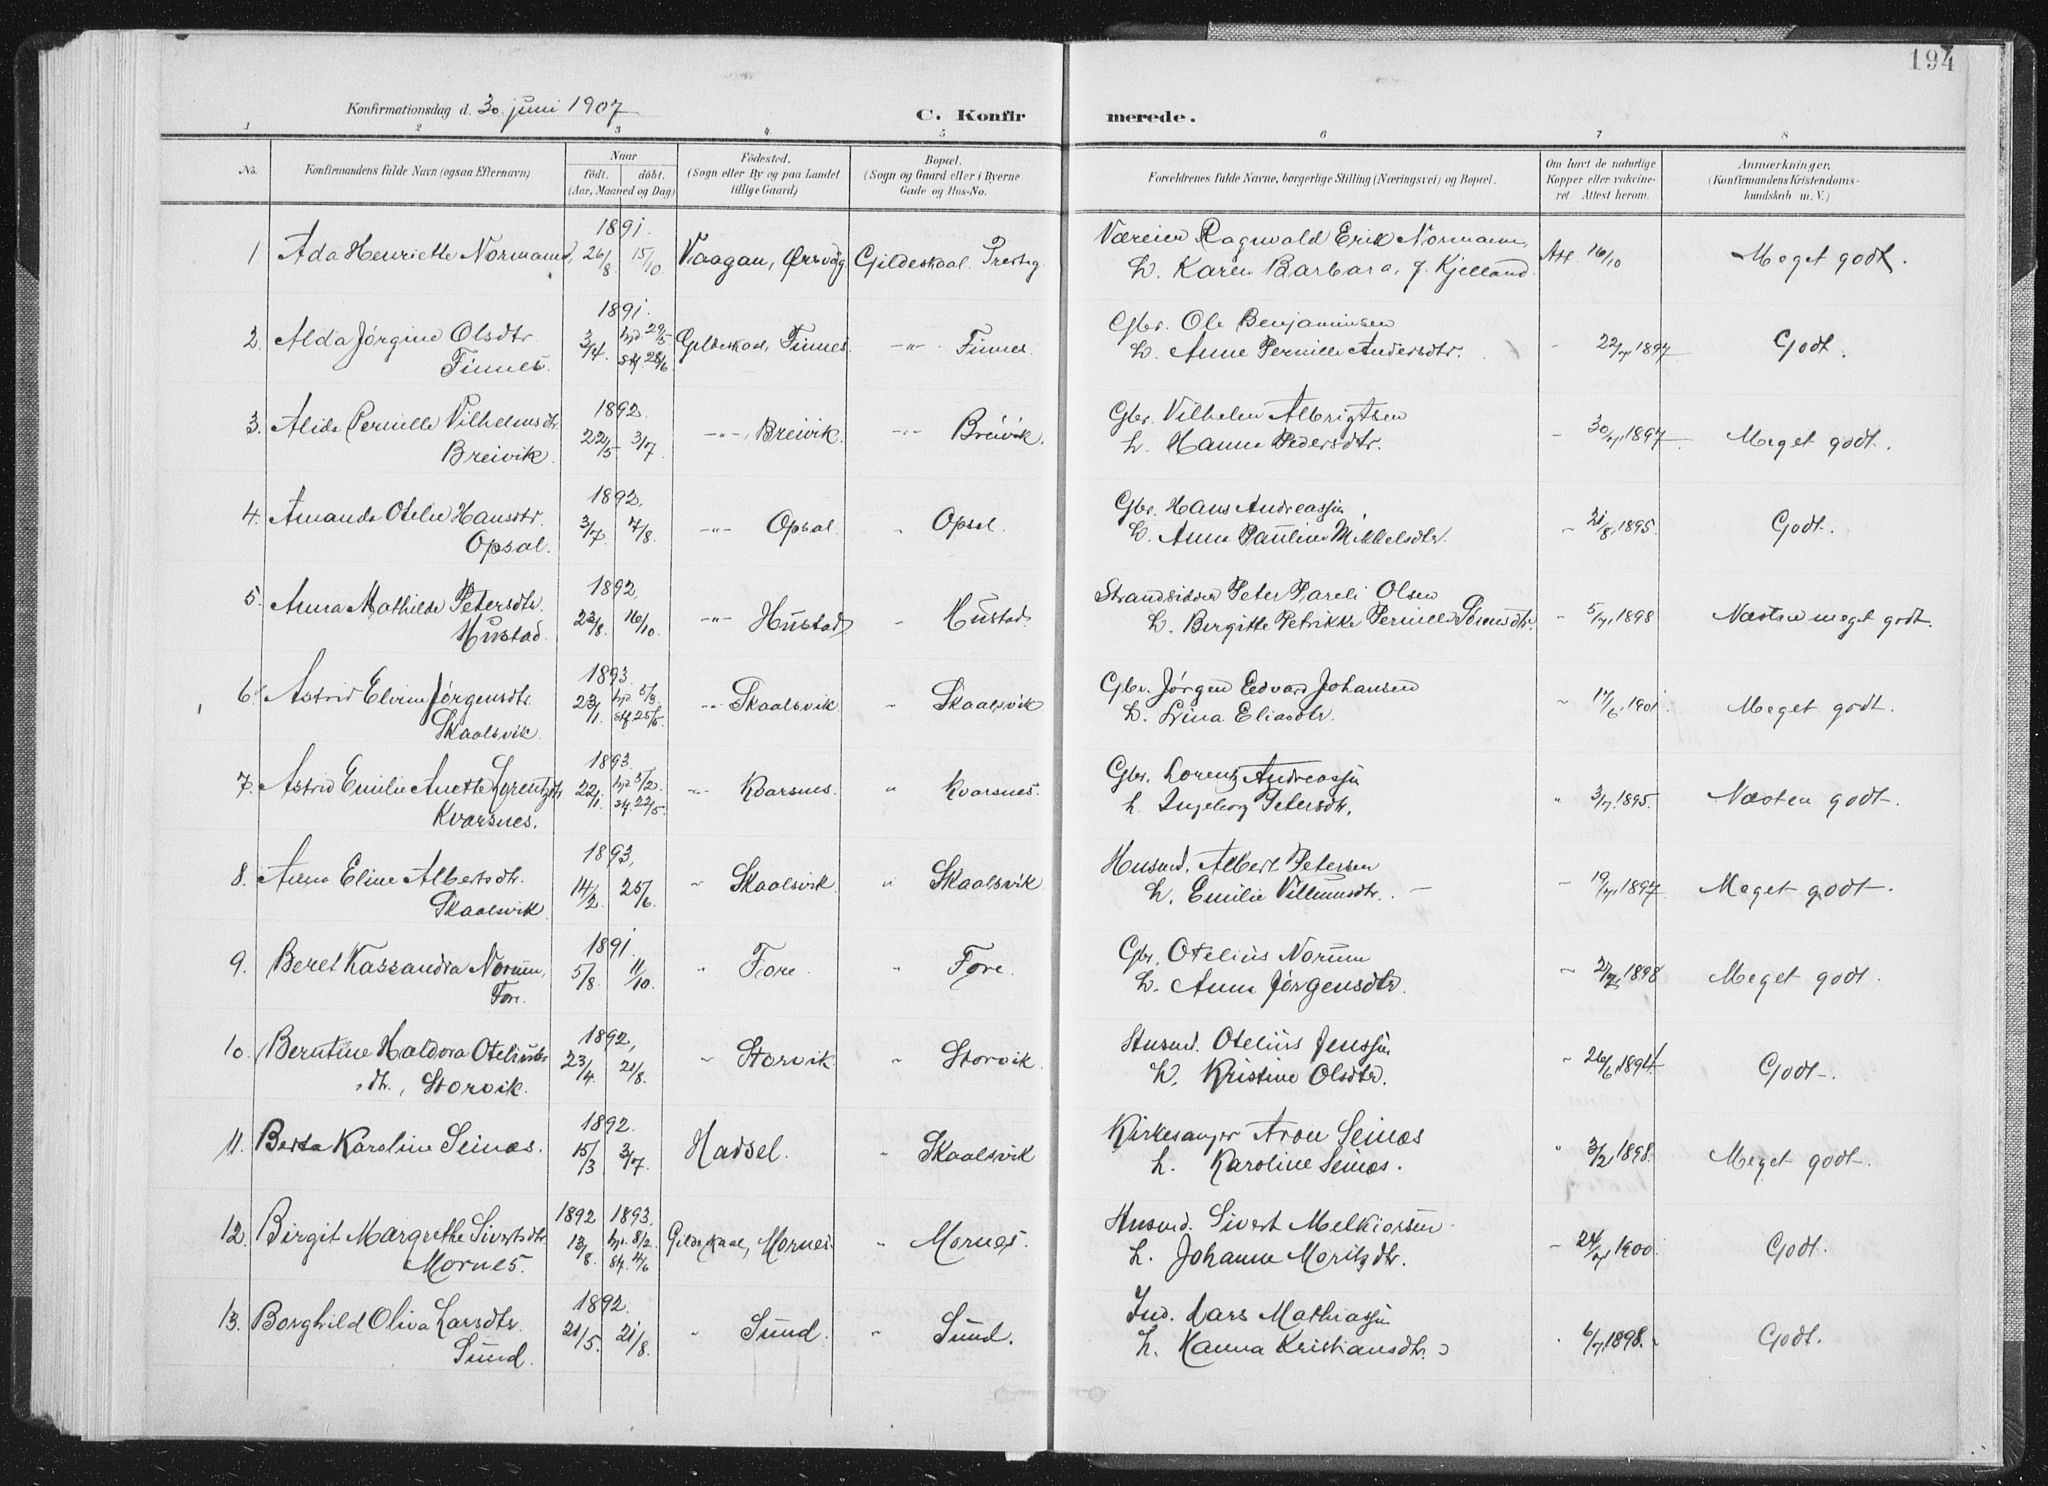 194
Konfirmationsdag d. 30. juni 1907
C. Konfirmerede.
1 2 3 4 5 6 7 8
No. Konfirmandens fulde Navn (ogsaa Efternavn) Naar født. døbt. (Aar, Maaned og Dag) Fødested. (Sogn eller By og paa Landet tillige Gaard) Bopæl. (Sogn og Gaard eller i Byerne Gade og Hus-No. Forældrenes fulde Navne, borgerlige Stilling (Næringsvei) og Bopæl. Om havt de naturlige Kopper eller vakcineret Attest herom. Anmærkninger, (Konfirmandens Kristendomskundskab m. V.)
1891.
1 Ada Henriette Normann, 26/8 15/10 Vaagan, Ørsvåg Gildeskaal Presteg. Væreier Ragnvald Erik Normann, Att 16/10 Meget godt.
h. Karen Barbara, f. Kjelland.
1891.
2. Alda Jørgine Olsdtr 3/4 hjd 29/5 Gildeskaal, Finnes. -"- Finnes Gbr. Ole Benjaminsen - 22/7 1897 Godt.
Finnes. stf. 28/6 h. Anne Pernille Andersdtr.
1892.
3. Alida Pernille Vilhelmsdtr. 22/5 3/7 -"- Breivik. -"- Breivik. Gbr. Vilhelm Albrigtsen - 30/7 1897 Meget godt.
Breivik. h. Hanna Pedersdtr.
1892.
4. Amanda Otelie Hansdtr. 3/7 7/8. -"- Opsal " Opsal. Gbr. Hans Andreassen - 21/8 1895. Godt.
Opsal. h. Anne Pauline Mikkelsdtr.
1892
5. Anna Mathilde Petersdtr. 23/8. 16/10 -"- Hustad " Hustad. Strandsidder Peter Pareli Olsen - 5/7 1898 Næsten meget godt.
Hustad. h. Bergitte Petrikke Pernille Sørensdtr.
1893.
6. Astrid Elvine Jørgensdtr. 23/1. hjd 5/3. -"- Skaalsvik " Skaalsvik Gbr. Jørgen Edvard Johansen " 17/6 1901 Meget godt.
Skaalsvik. stf. 25/5. h. Lina Eliasdtr.
1893.
7. Astrid Emilie Anette Lorentzdtr 22/1 hjd 5/2. -"- Kvarsnes. " Kvarsnes. Gbr. Lorentz Andreassen " 3/7 1895. Næsten godt.
Kvarsnes. stf. 22/5. h. Ingeborg Petersdtr.
1893,
8. Anna Eline Albertsdtr. 14/2. 25/6. " Skaalsvik " Skaalsvik Husmd. Albert Petersen - 19/7 1897 Meget godt.
Skaalsvik. h. Emilie Villumsdtr.
1891.
9. Beret Kassandra Norum, 5/8 11/10. " Fore. " Fore. Gbr. Otelius Norum - 1898 Meget godt.
Fore. h. Anna Jørgensdtr.
1892,
10. Berntine Haldora Otelius- 23/4. 21/8. " Storvik " Storvik. Husmd. Otelius Jenssen " 26/6 1894 Godt.
dtr., Storvik. h. Kristine Olsdtr.
1892.
11. Berta Karoline Seines. 15/3 3/7. Hadsel. " Skaalsvik Kirkesanger Aron Seines " 3/2 1898. Meget godt.
h. Karoline Seines.
1892 1893.
12. Birgit Margrethe Sivertsdtr 13/8. hjd. 8/2. Gildeskaal, Mornes. " Mornes. Husmd. Sivert Melkiorsen - 24/7 1900. Godt.
Mornes. stf. 4/6 h. Johanne Moritzdtr.
1892.
13. Borghild Oliva Larsdtr. 21/5. 21/8. " Sund. " Sund. Ind. Lars Mathiassen " 6/7 1898. Godt.
Sund. h. Hanna Kristiansdtr.